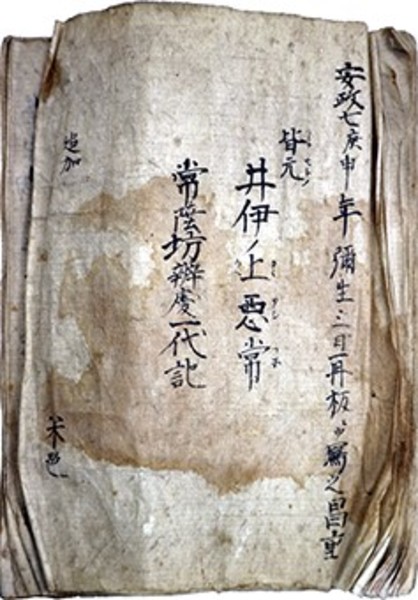 安政七庚申年彌生三日再板ヨリ写之昌重
皆元
井伊ノ上悪常
常陸坊辨慶一代記
追加
米